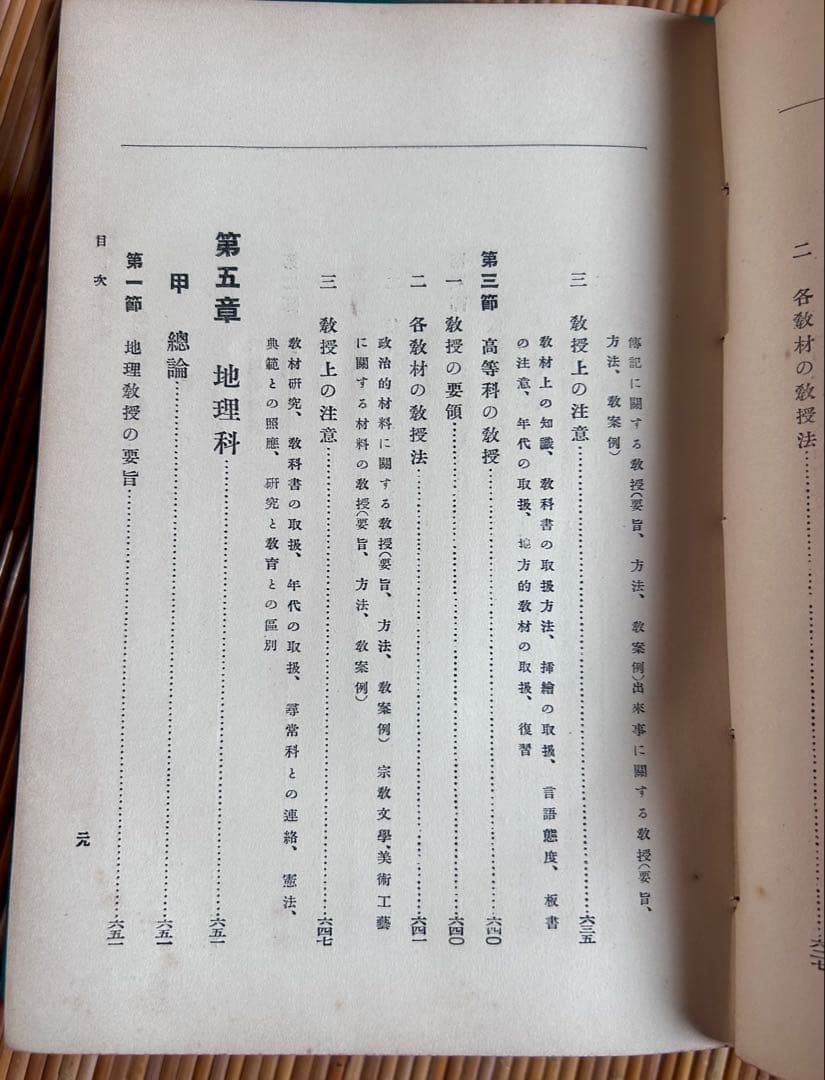 二 各敎材の敎授法……六二七
傳記に關する敎授(要旨、方法、敎案例)出來事に關する敎授(要旨、
方法、敎案例)
三 敎授上の注意……六三五
敎材上の知識、敎科書の取扱方法、揷繪の取扱、言語態度、板書
の注意、年代の取扱、地方的敎材の取扱、復習
第三節 高等科の敎授……六四〇
一 敎授の要領……六四〇
二 各敎材の敎授法……六四一
政治的材料に關する敎授(要旨、方法、敎案例)宗敎文學、美術工藝
に關する材料の敎授(要旨、方法、敎案例)
三 敎授上の注意……六四七
敎材硏究、敎科書の取扱、年代の取扱、尋常科との連絡、憲法、
典範との照應、硏究と敎育との區別
第五章 地理科……六五一
甲 總論……六五一
第一節 地理敎授の要旨……六五一
目次
元